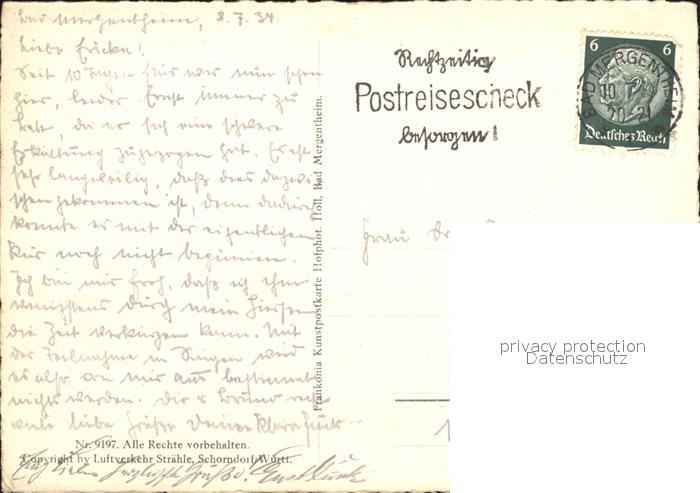 Bad Mergentheim, 8.7.34
Liebe Ericka!
Seit 10 Tagen sind wir nun schon
hier, leider Ernst immer zu
Bett, da er sich eine schwere
Erkältung zugezogen hat. Es ist
sehr langweilig, daß dies dazwi-
schen gekommen ist, denn dadurch
konnte er mit der eigentlichen
Kur noch nicht beginnen.
Ich bin nur froh, daß ich ihm
wenigstens durch mein Hiersein
die Zeit verkürzen kann. Mit
der Teilnahme in Singen wird
es also von mir aus bestimmt
nichts werden. Dir
viele liebe Grüße Deine
Nr. 9197. Alle Rechte vorbehalten.
Copyright by Luftverkehr Strähle, Schorndorf/Württ.
herzlichste Grüße!
Frankonia Kunstpostkarte Hofphot. Holl, Bad Mergentheim.
Rechtzeitig
Postreisescheck
besorgen!
6 6
BAD MERGENTHEIM
10.7.
20-21
Deutsches Reich
Frau
privacy protection
Datenschutz